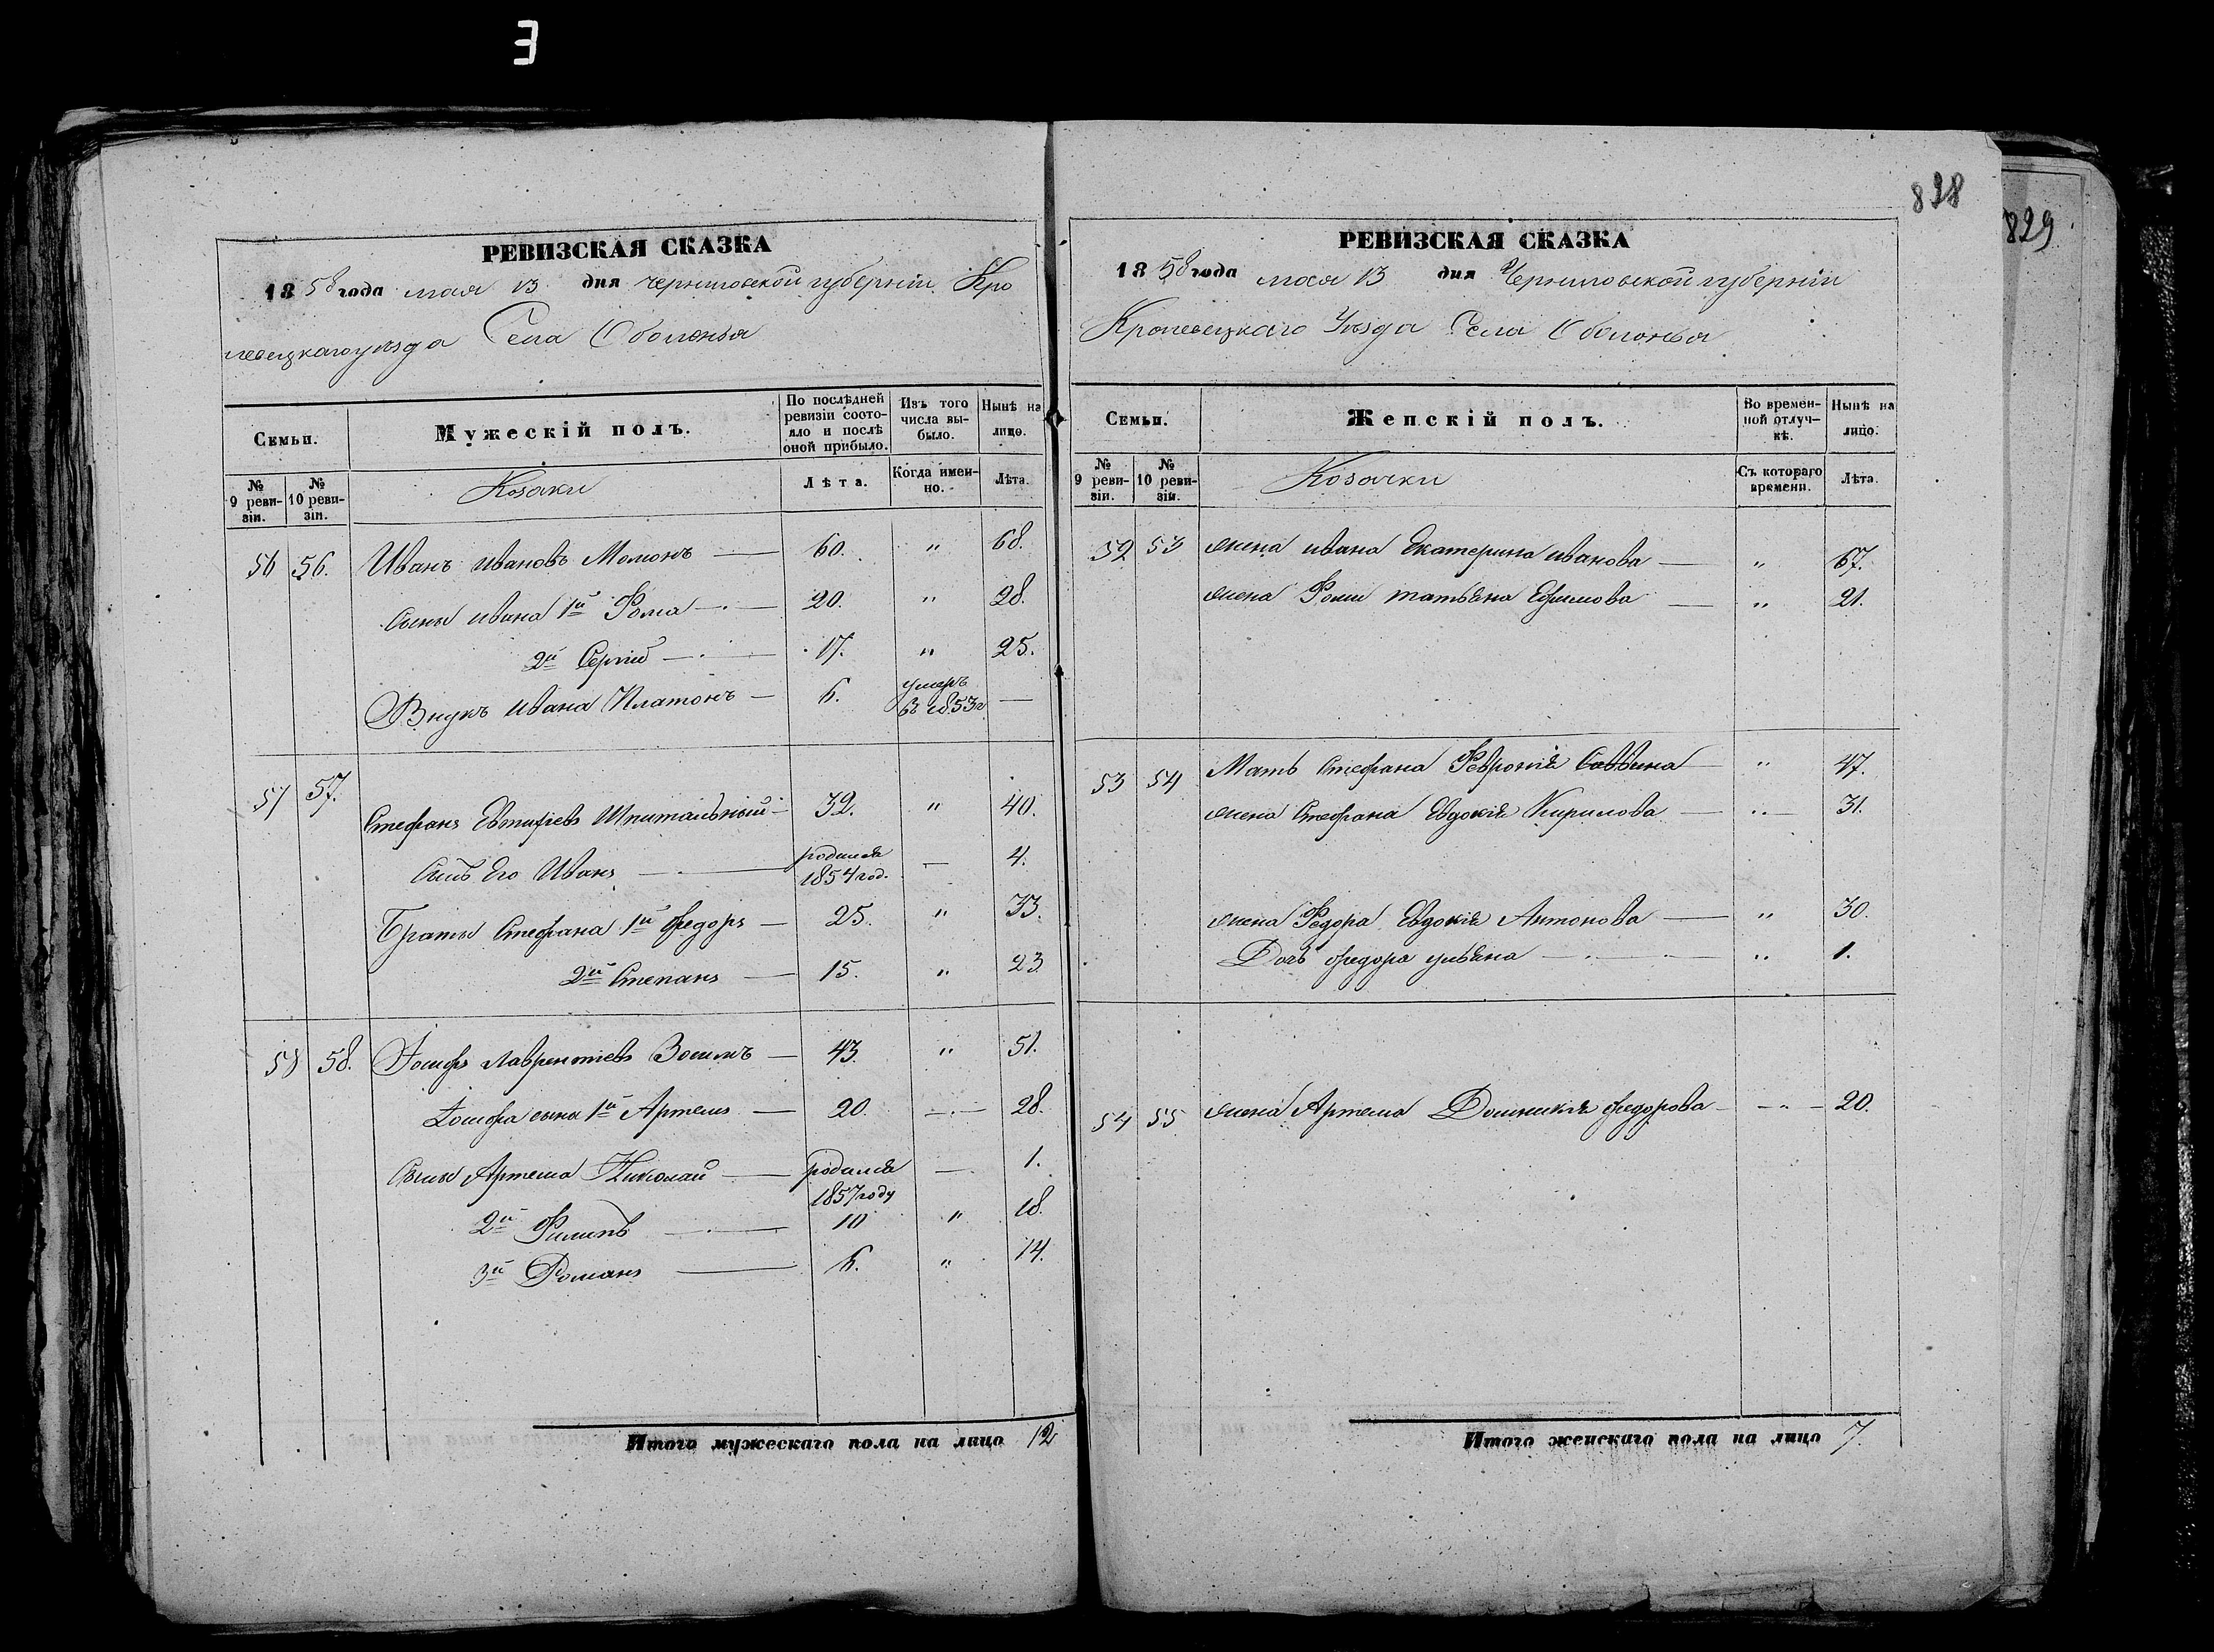 З
828
829
РЕВИЗСКАЯ СКАЗКА
1858 года мая 13 дня Черниговской губерніи Кро
левецкаго уѣзда Села Оболонья
Семьи.
Мужескій полъ.
По послѣдней ревизіи состояло и послѣ оной прибыло.
Изъ того числа выбыло.
Нынѣ на лицо.
№ 9 ревизіи.
№ 10 ревизіи.
Козаки
Лѣта.
Когда именно.
Лѣта.
56 56. Иванъ Ивановъ Момонъ — 60. " 68.
Сыны Ивана 1й Фома — 20. " 28.
2й Сергій — 17. " 25.
Внукъ Ивана Платонъ — 6. умеръ въ 1853 г. —
57 57. Стефанъ Евтифіевъ Шпитальный — 32. " 40.
Сынъ Его Иванъ — родился 1854 год. — 4.
Браты Стефана 1й Федоръ — 25. " 33.
2й Степанъ — 15. " 23
58 58. Іосифъ Лаврентіевъ Зосимъ — 43. " 51.
Іосифа сыны 1й Артемъ — 20. — 28.
Сынъ Артема Николай — родился 1857 году — 1.
2й Филипъ — 10 " 18.
3й Романъ — 6. " 14.
Итого мужескаго пола на лицо 12
РЕВИЗСКАЯ СКАЗКА
1858 года мая 13 дня Черниговской губерніи
Кролевецкаго Уѣзда Села Оболонья
Семьи.
Женскій полъ.
Во временной отлучкѣ.
Нынѣ на лицо.
№ 9 ревизіи.
№ 10 ревизіи.
Козачки
Съ котораго времени.
Лѣта.
52 53 жена Ивана Екатерина Иванова — " 67.
жена Фомы Татьяна Ефимова — " 21.
53 54 Мать Стефана Февронія Саввина — " 47.
жена Стефана Евдокія Кирилова — " 31.
жена Федора Евдокія Антонова — " 30.
Дочь Федора Ульяна — " 1.
54 55 жена Артема Домникія Федорова — " — 20.
Итого женскаго пола на лицо 7.